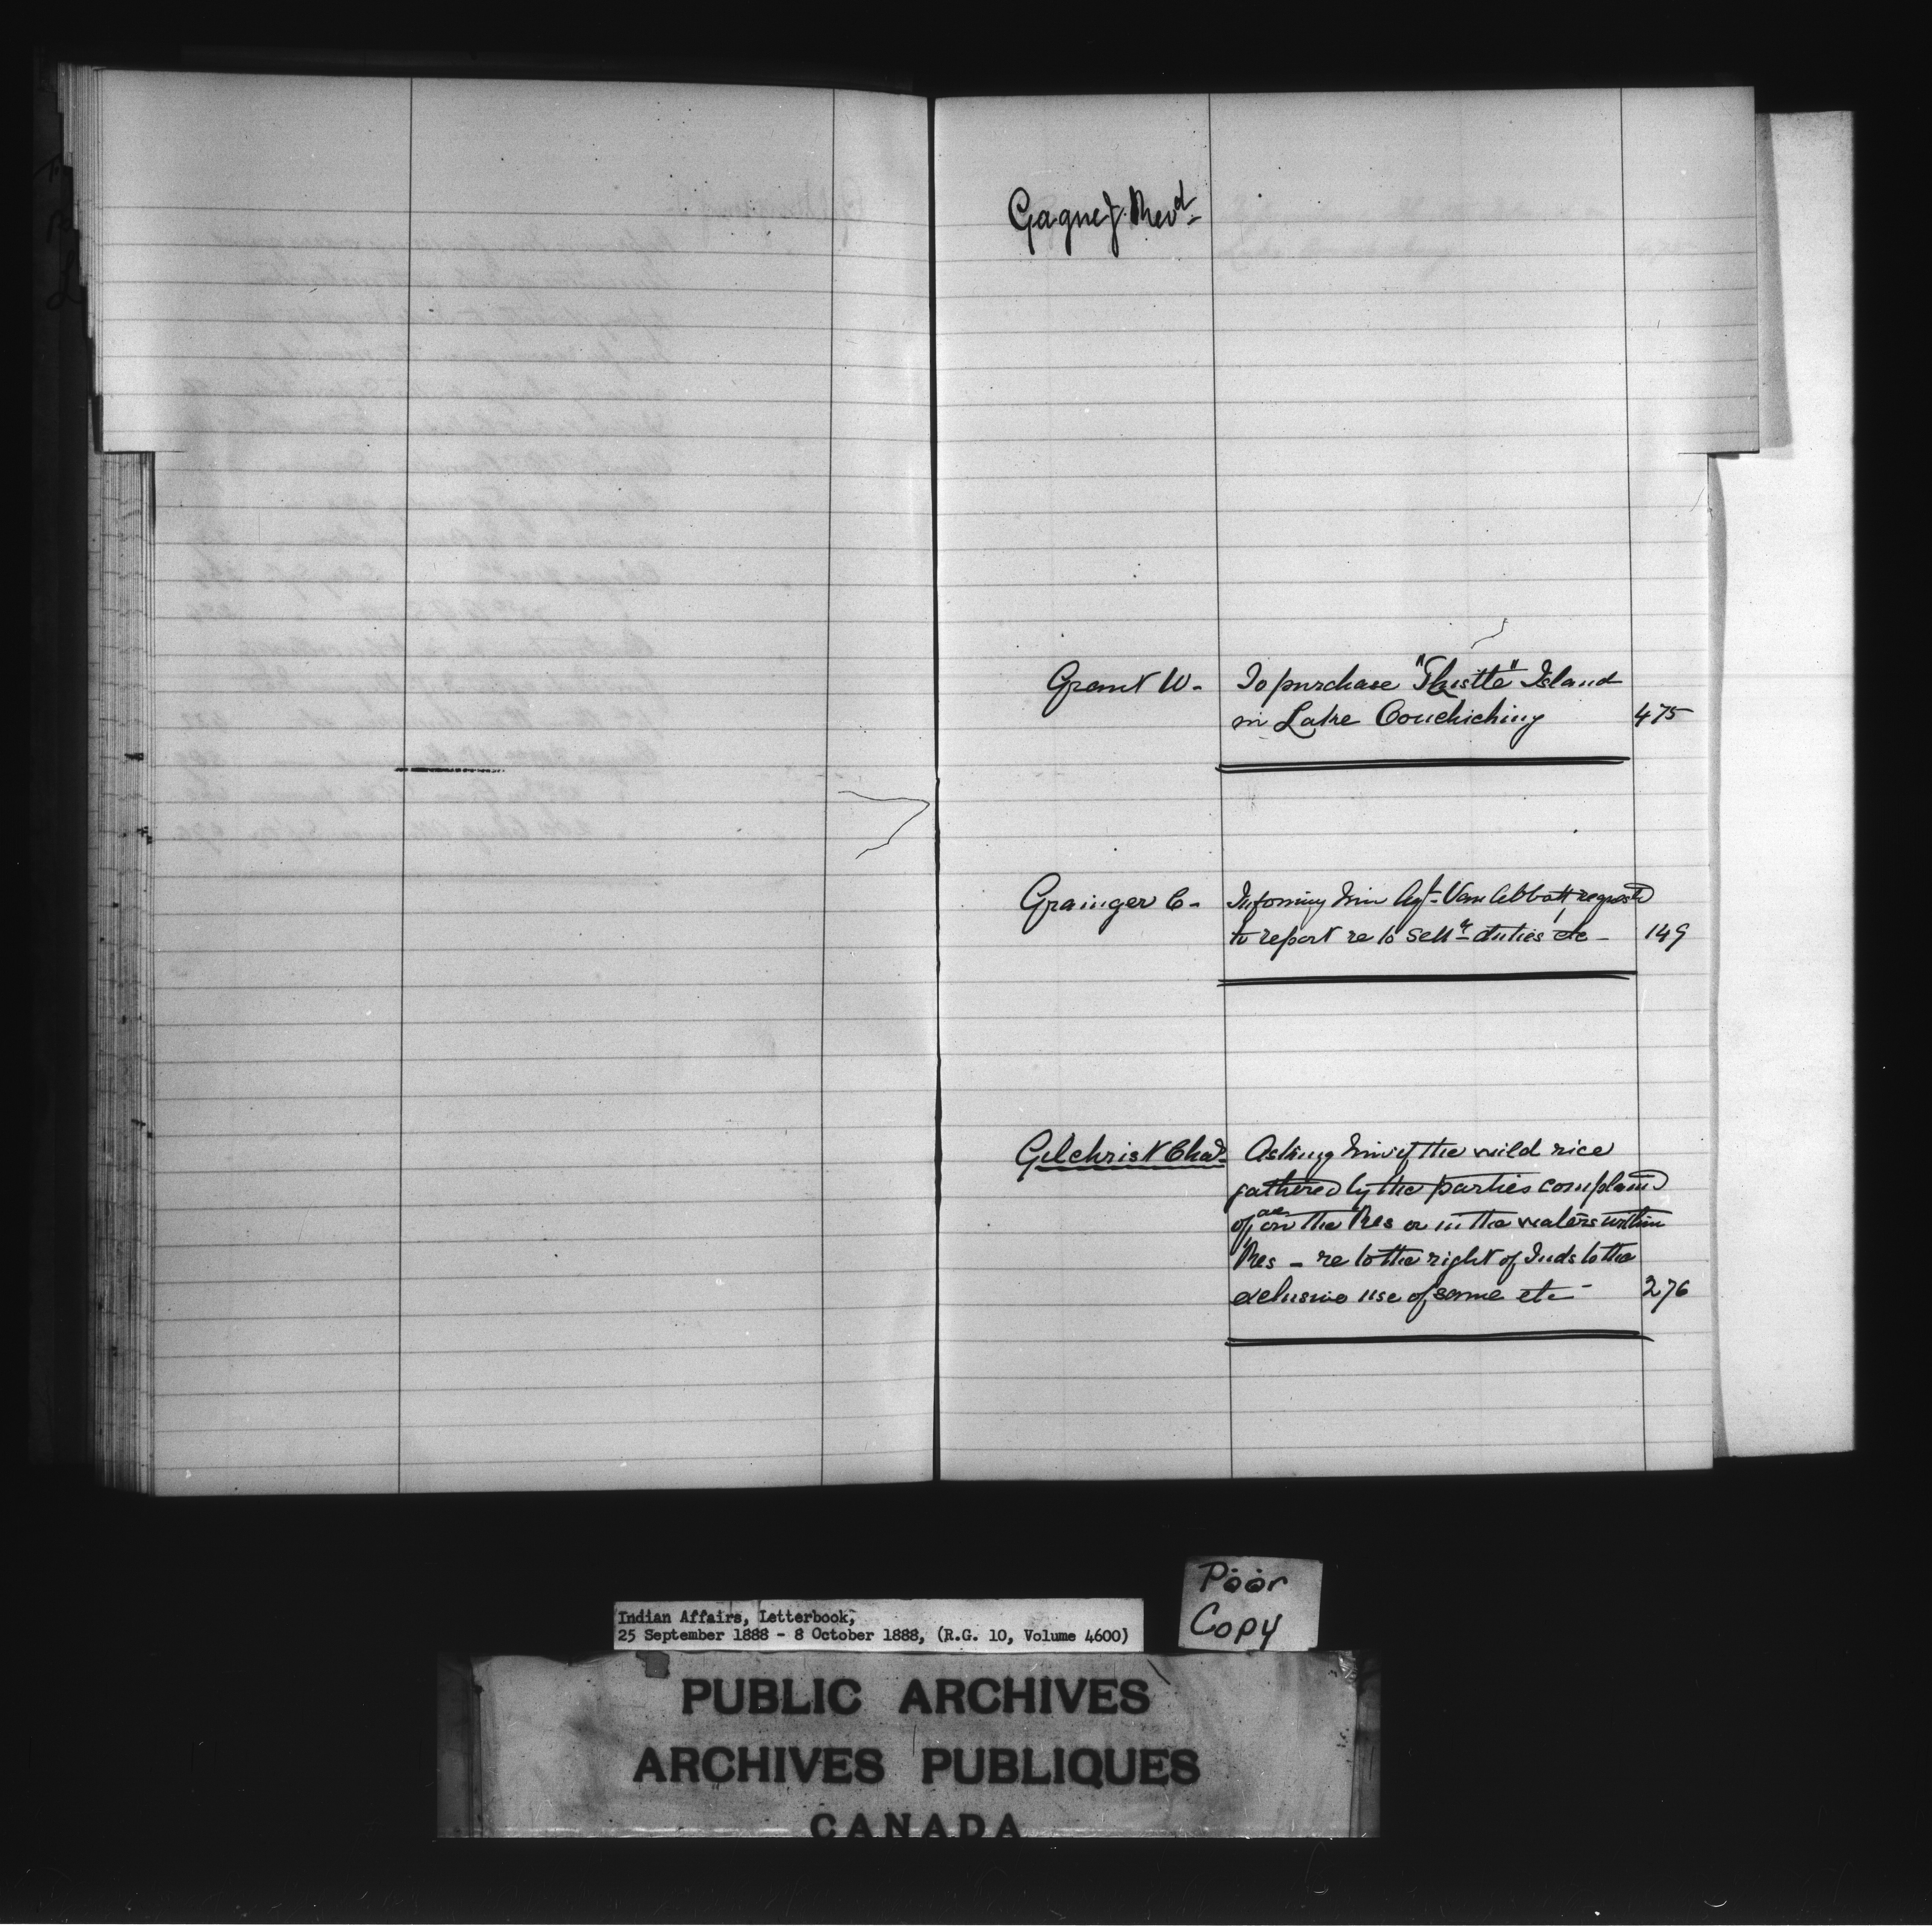 Gagne J. Revd
Grant W- To purchase "Thistle" Island
in Lake Couchiching 475
Grainger C- Informing him Agt- Van Abbott requestd
to report re to settr- duties etc- 149
Gilchrist Chas- Asking him if the wild rice
gathered by the parties complaind
of are on the Res or in the waters within
Res - re to the right of Inds to the
exclusive use of same etc- 276
Poor
Copy
Indian Affairs, Letterbook,
25 September 1888 - 8 October 1888, (R.G. 10, Volume 4600)
PUBLIC ARCHIVES
ARCHIVES PUBLIQUES
CANADA